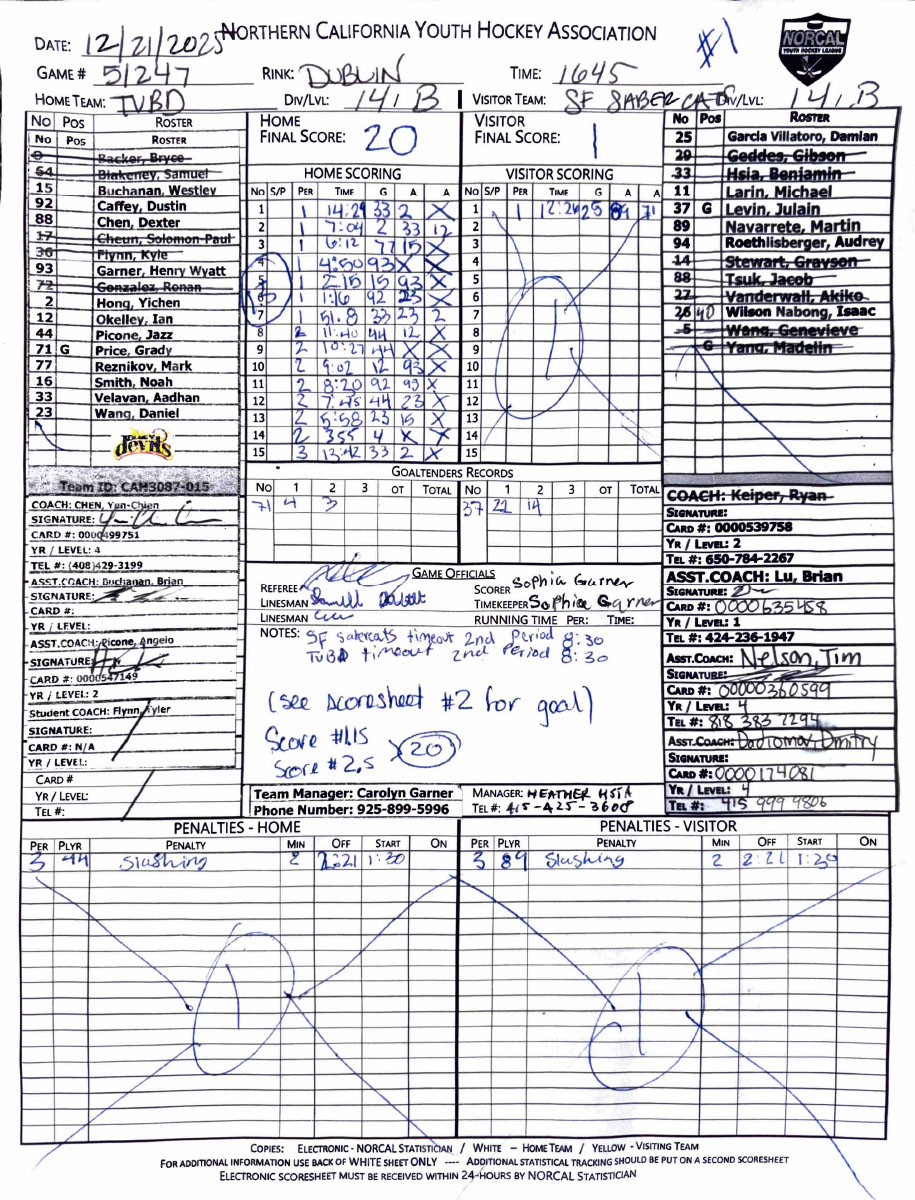 NORTHERN CALIFORNIA YOUTH HOCKEY ASSOCIATION
#1
NORCAL
YOUTH HOCKEY LEAGUE
DATE: 12/21/2025
GAME # 51247 RINK: DUBLIN TIME: 1645
HOME TEAM: TVBD DIV/LVL: 14U B VISITOR TEAM: SF SABERCATS DIV/LVL: 14U B
No Pos ROSTER
No Pos ROSTER
0 Backer, Bryce
64 Blakeney, Samuel
15 Buchanan, Westley
92 Caffey, Dustin
88 Chen, Dexter
17 Cheun, Solomon-Paul
36 Flynn, Kyle
93 Garner, Henry Wyatt
72 Gonzalez, Ronan
2 Hong, Yichen
12 Okelley, Ian
44 Picone, Jazz
71 G Price, Grady
77 Reznikov, Mark
16 Smith, Noah
33 Velavan, Aadhan
23 Wang, Daniel
devils
Team ID: CAM3087-015
HOME FINAL SCORE: 20
VISITOR FINAL SCORE: 1
HOME SCORING
No S/P PER TIME G A A
1 1 14:29 33 2 X
2 1 7:04 2 33 12
3 1 6:12 77 15 X
4 1 4:50 93 X X
5 1 2:15 15 93 X
6 1 1:16 92 23 X
7 1 51.8 33 23 2
8 2 11:40 44 12 X
9 2 10:27 44 X X
10 2 9:02 12 93 X
11 2 8:20 92 93 X
12 2 7:45 44 23 X
13 2 5:58 23 15 X
14 2 355 4 X X
15 3 12:42 33 2 X
VISITOR SCORING
No S/P PER TIME G A A
1 1 12:26 25 89 71
2
3
4
5
6
7
8
9
10
11
12
13
14
15
1
No Pos ROSTER
25 Garcia Villatoro, Damian
29 Geddes, Gibson
33 Hsia, Benjamin
11 Larin, Michael
37 G Levin, Julain
89 Navarrete, Martin
94 Roethlisberger, Audrey
14 Stewart, Grayson
88 Tsuk, Jacob
27 Vanderwall, Akiko
26 40 Wilson Nabong, Isaac
5 Wong, Genevieve
G Yang, Madelin
GOALTENDERS RECORDS
No 1 2 3 OT TOTAL No 1 2 3 OT TOTAL
71 4 3 37 22 14
COACH: CHEN, Yun-Chien
SIGNATURE:
CARD #: 0000499751
YR / LEVEL: 4
TEL #: (408)429-3199
ASST.COACH: Buchanan, Brian
SIGNATURE:
CARD #:
YR / LEVEL:
ASST.COACH: Picone, Angelo
SIGNATURE:
CARD #: 0000547149
YR / LEVEL: 2
Student COACH: Flynn, Tyler
SIGNATURE:
CARD #: N/A
YR / LEVEL:
CARD #
YR / LEVEL:
TEL #:
GAME OFFICIALS
REFEREE SCORER Sophia Garner
LINESMAN TIMEKEEPER Sophia Garner
LINESMAN RUNNING TIME PER: TIME:
NOTES: SF sabercats timeout 2nd Period 8:30
TVBD timeout 2nd Period 8:30
(see scoresheet #2 for goal)
Score #1.15
Score #2.5 20
Team Manager: Carolyn Garner
Phone Number: 925-899-5996
MANAGER: HEATHER HSIA
TEL#: 415-425-3608
COACH: Keiper, Ryan
SIGNATURE:
CARD #: 0000539758
YR / LEVEL: 2
TEL #: 650-784-2267
ASST.COACH: Lu, Brian
SIGNATURE:
CARD #: 0000635458
YR / LEVEL: 1
TEL #: 424-236-1947
ASST.COACH: Nelson, Tim
SIGNATURE:
CARD #: 00000360599
YR / LEVEL: 4
TEL #: 818 383 7294
ASST.COACH: Dadiomov, Dmitry
SIGNATURE:
CARD #: 0000174081
YR / LEVEL: 4
TEL #: 415 999 9806
PENALTIES - HOME PENALTIES - VISITOR
PER PLYR PENALTY MIN OFF START ON PER PLYR PENALTY MIN OFF START ON
3 44 Slashing 2 2:21 1:30 3 89 Slashing 2 2:21 1:30
1 1
COPIES: ELECTRONIC - NORCAL STATISTICIAN / WHITE – HOME TEAM / YELLOW - VISITING TEAM
FOR ADDITIONAL INFORMATION USE BACK OF WHITE SHEET ONLY ---- ADDITIONAL STATISTICAL TRACKING SHOULD BE PUT ON A SECOND SCORESHEET
ELECTRONIC SCORESHEET MUST BE RECEIVED WITHIN 24-HOURS BY NORCAL STATISTICIAN